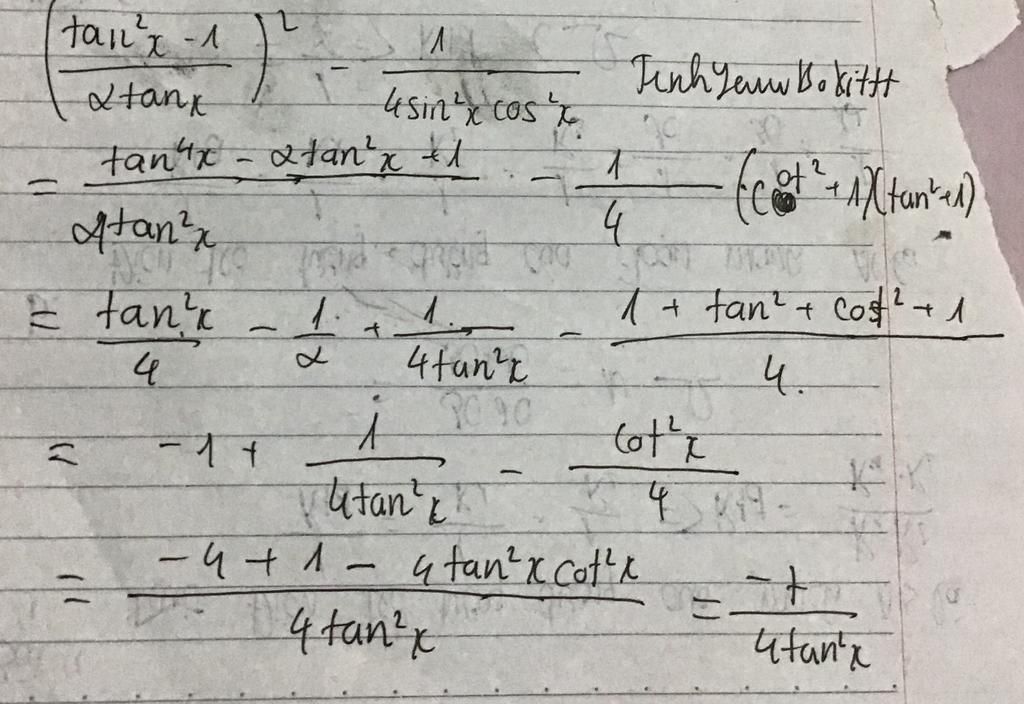 (\frac{tan²x - 1}{2tanx})² - \frac{1}{4sin²x cos²x}
= \frac{tan⁴x - 2tan²x + 1}{4tan²x} - \frac{1}{4} (cot² + 1)(tan² + 1)
= \frac{tan²x}{4} - \frac{1}{2} + \frac{1}{4tan²x} - \frac{1 + tan² + cot² + 1}{4}
= -1 + \frac{1}{4tan²x} - \frac{cot²x}{4}
= \frac{-4 + 1 - 4tan²x cot²x}{4tan²x} = \frac{-7}{4tan²x}